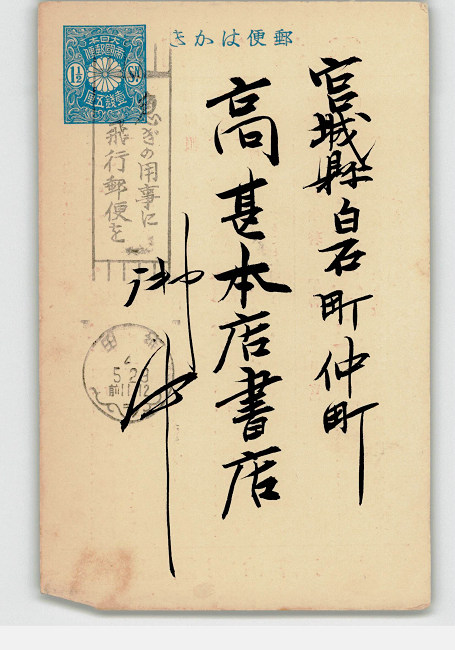 郵便はかき
大日本
帝國郵便
1½ Sn.
壹錢五厘
宮城縣白石町仲町
高甚本店書店
御中
急ぎの用事に
飛行郵便を
5.29